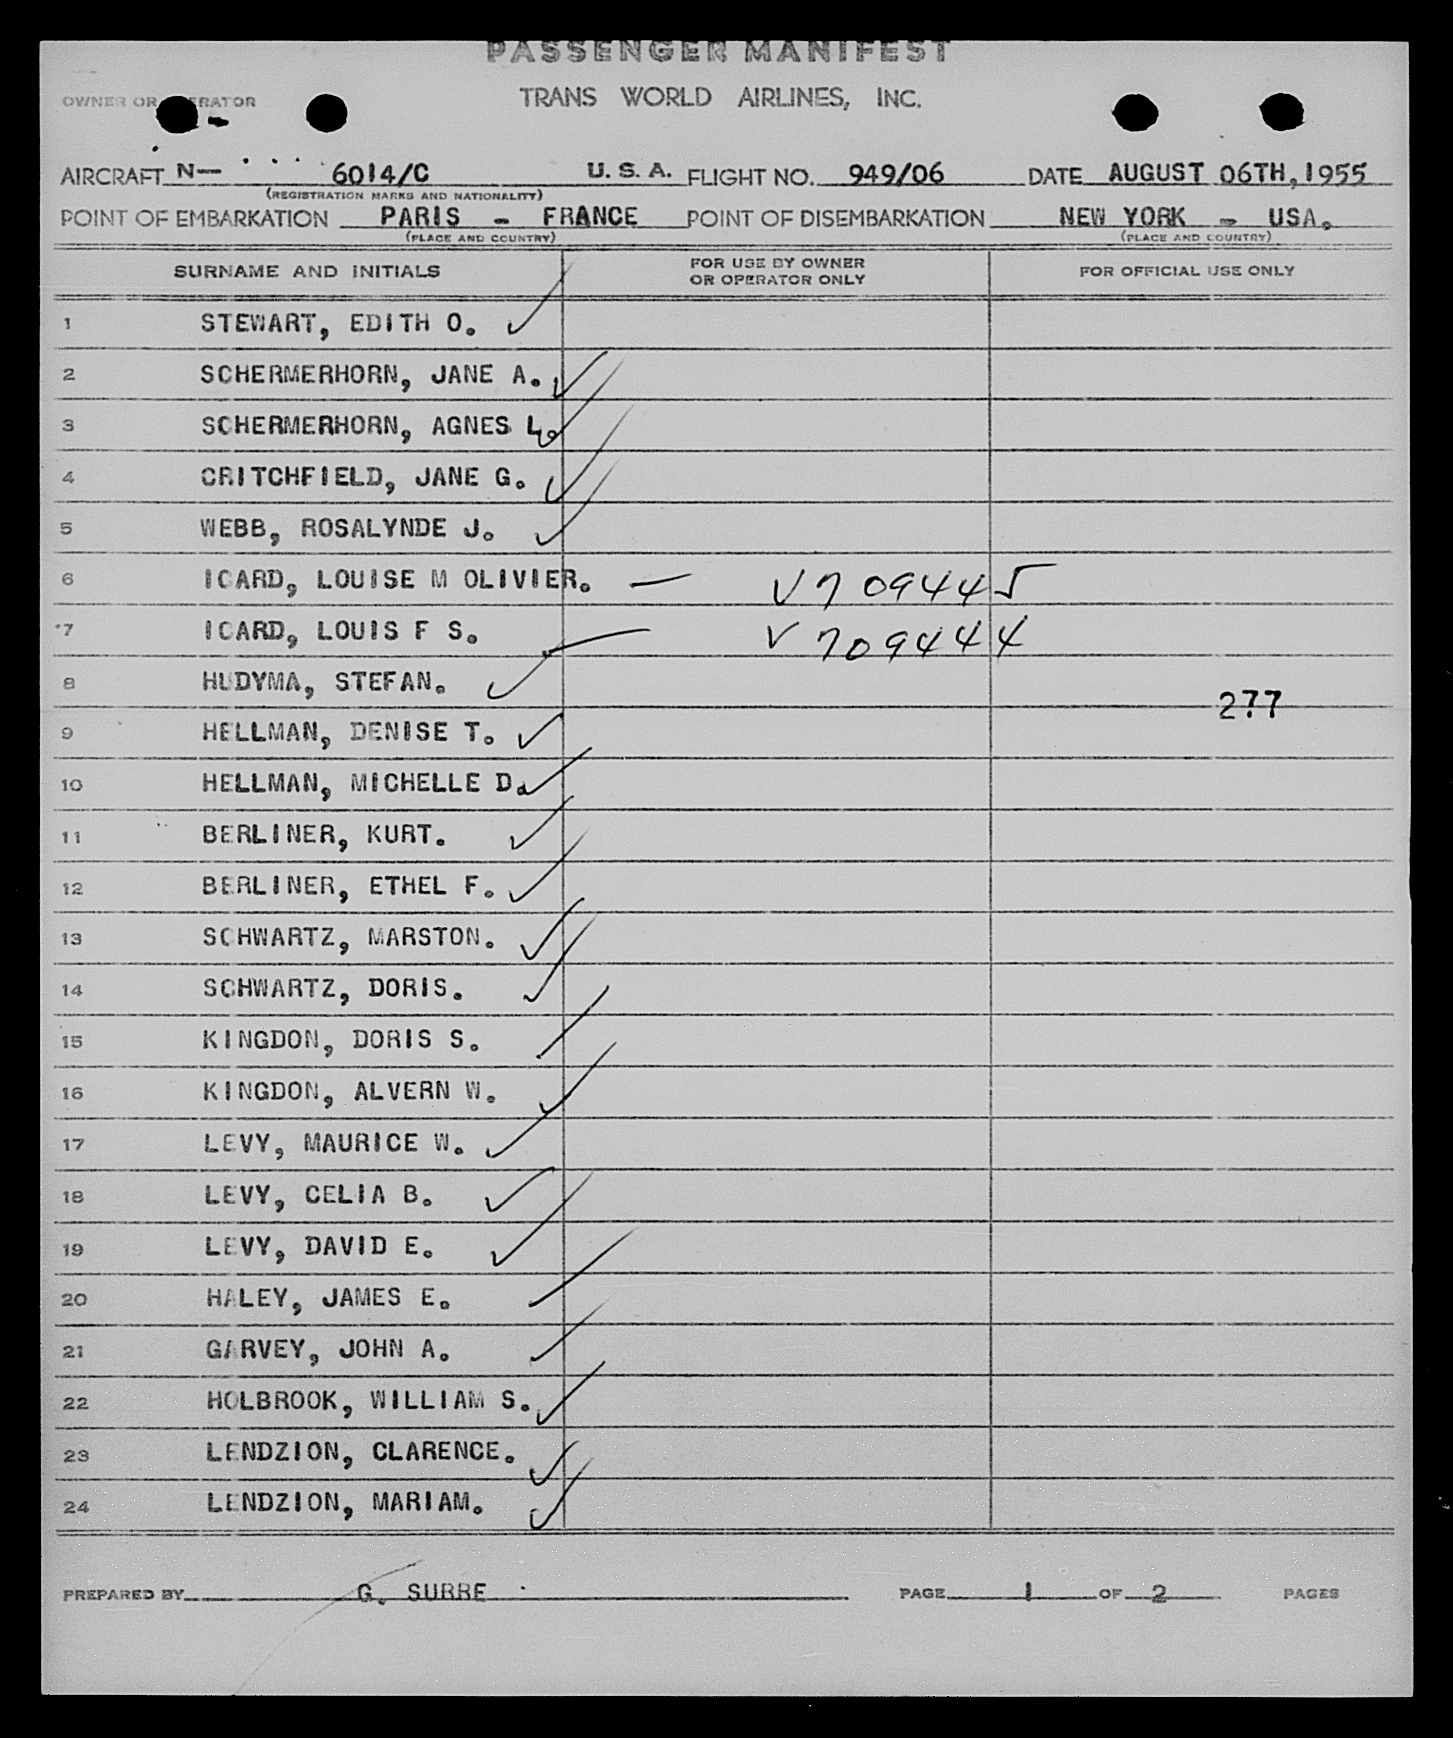 PASSENGER MANIFEST
OWNER OR OPERATOR
TRANS WORLD AIRLINES, INC.
AIRCRAFT N— 6014/C U. S. A. FLIGHT NO. 949/06 DATE AUGUST 06TH, 1955
(REGISTRATION MARKS AND NATIONALITY)
POINT OF EMBARKATION PARIS - FRANCE POINT OF DISEMBARKATION NEW YORK - USA.
(PLACE AND COUNTRY) (PLACE AND COUNTRY)
SURNAME AND INITIALS FOR USE BY OWNER OR OPERATOR ONLY FOR OFFICIAL USE ONLY
1 STEWART, EDITH O.
2 SCHERMERHORN, JANE A.
3 SCHERMERHORN, AGNES L.
4 CRITCHFIELD, JANE G.
5 WEBB, ROSALYNDE J.
6 ICARD, LOUISE M OLIVIER. — V709445
7 ICARD, LOUIS F S. — V709444
8 HUDYMA, STEFAN.
277
9 HELLMAN, DENISE T.
10 HELLMAN, MICHELLE D.
11 BERLINER, KURT.
12 BERLINER, ETHEL F.
13 SCHWARTZ, MARSTON.
14 SCHWARTZ, DORIS.
15 KINGDON, DORIS S.
16 KINGDON, ALVERN W.
17 LEVY, MAURICE W.
18 LEVY, CELIA B.
19 LEVY, DAVID E.
20 HALEY, JAMES E.
21 GARVEY, JOHN A.
22 HOLBROOK, WILLIAM S.
23 LENDZION, CLARENCE.
24 LENDZION, MARIAM.
PREPARED BY G. SURRE PAGE 1 OF 2 PAGES